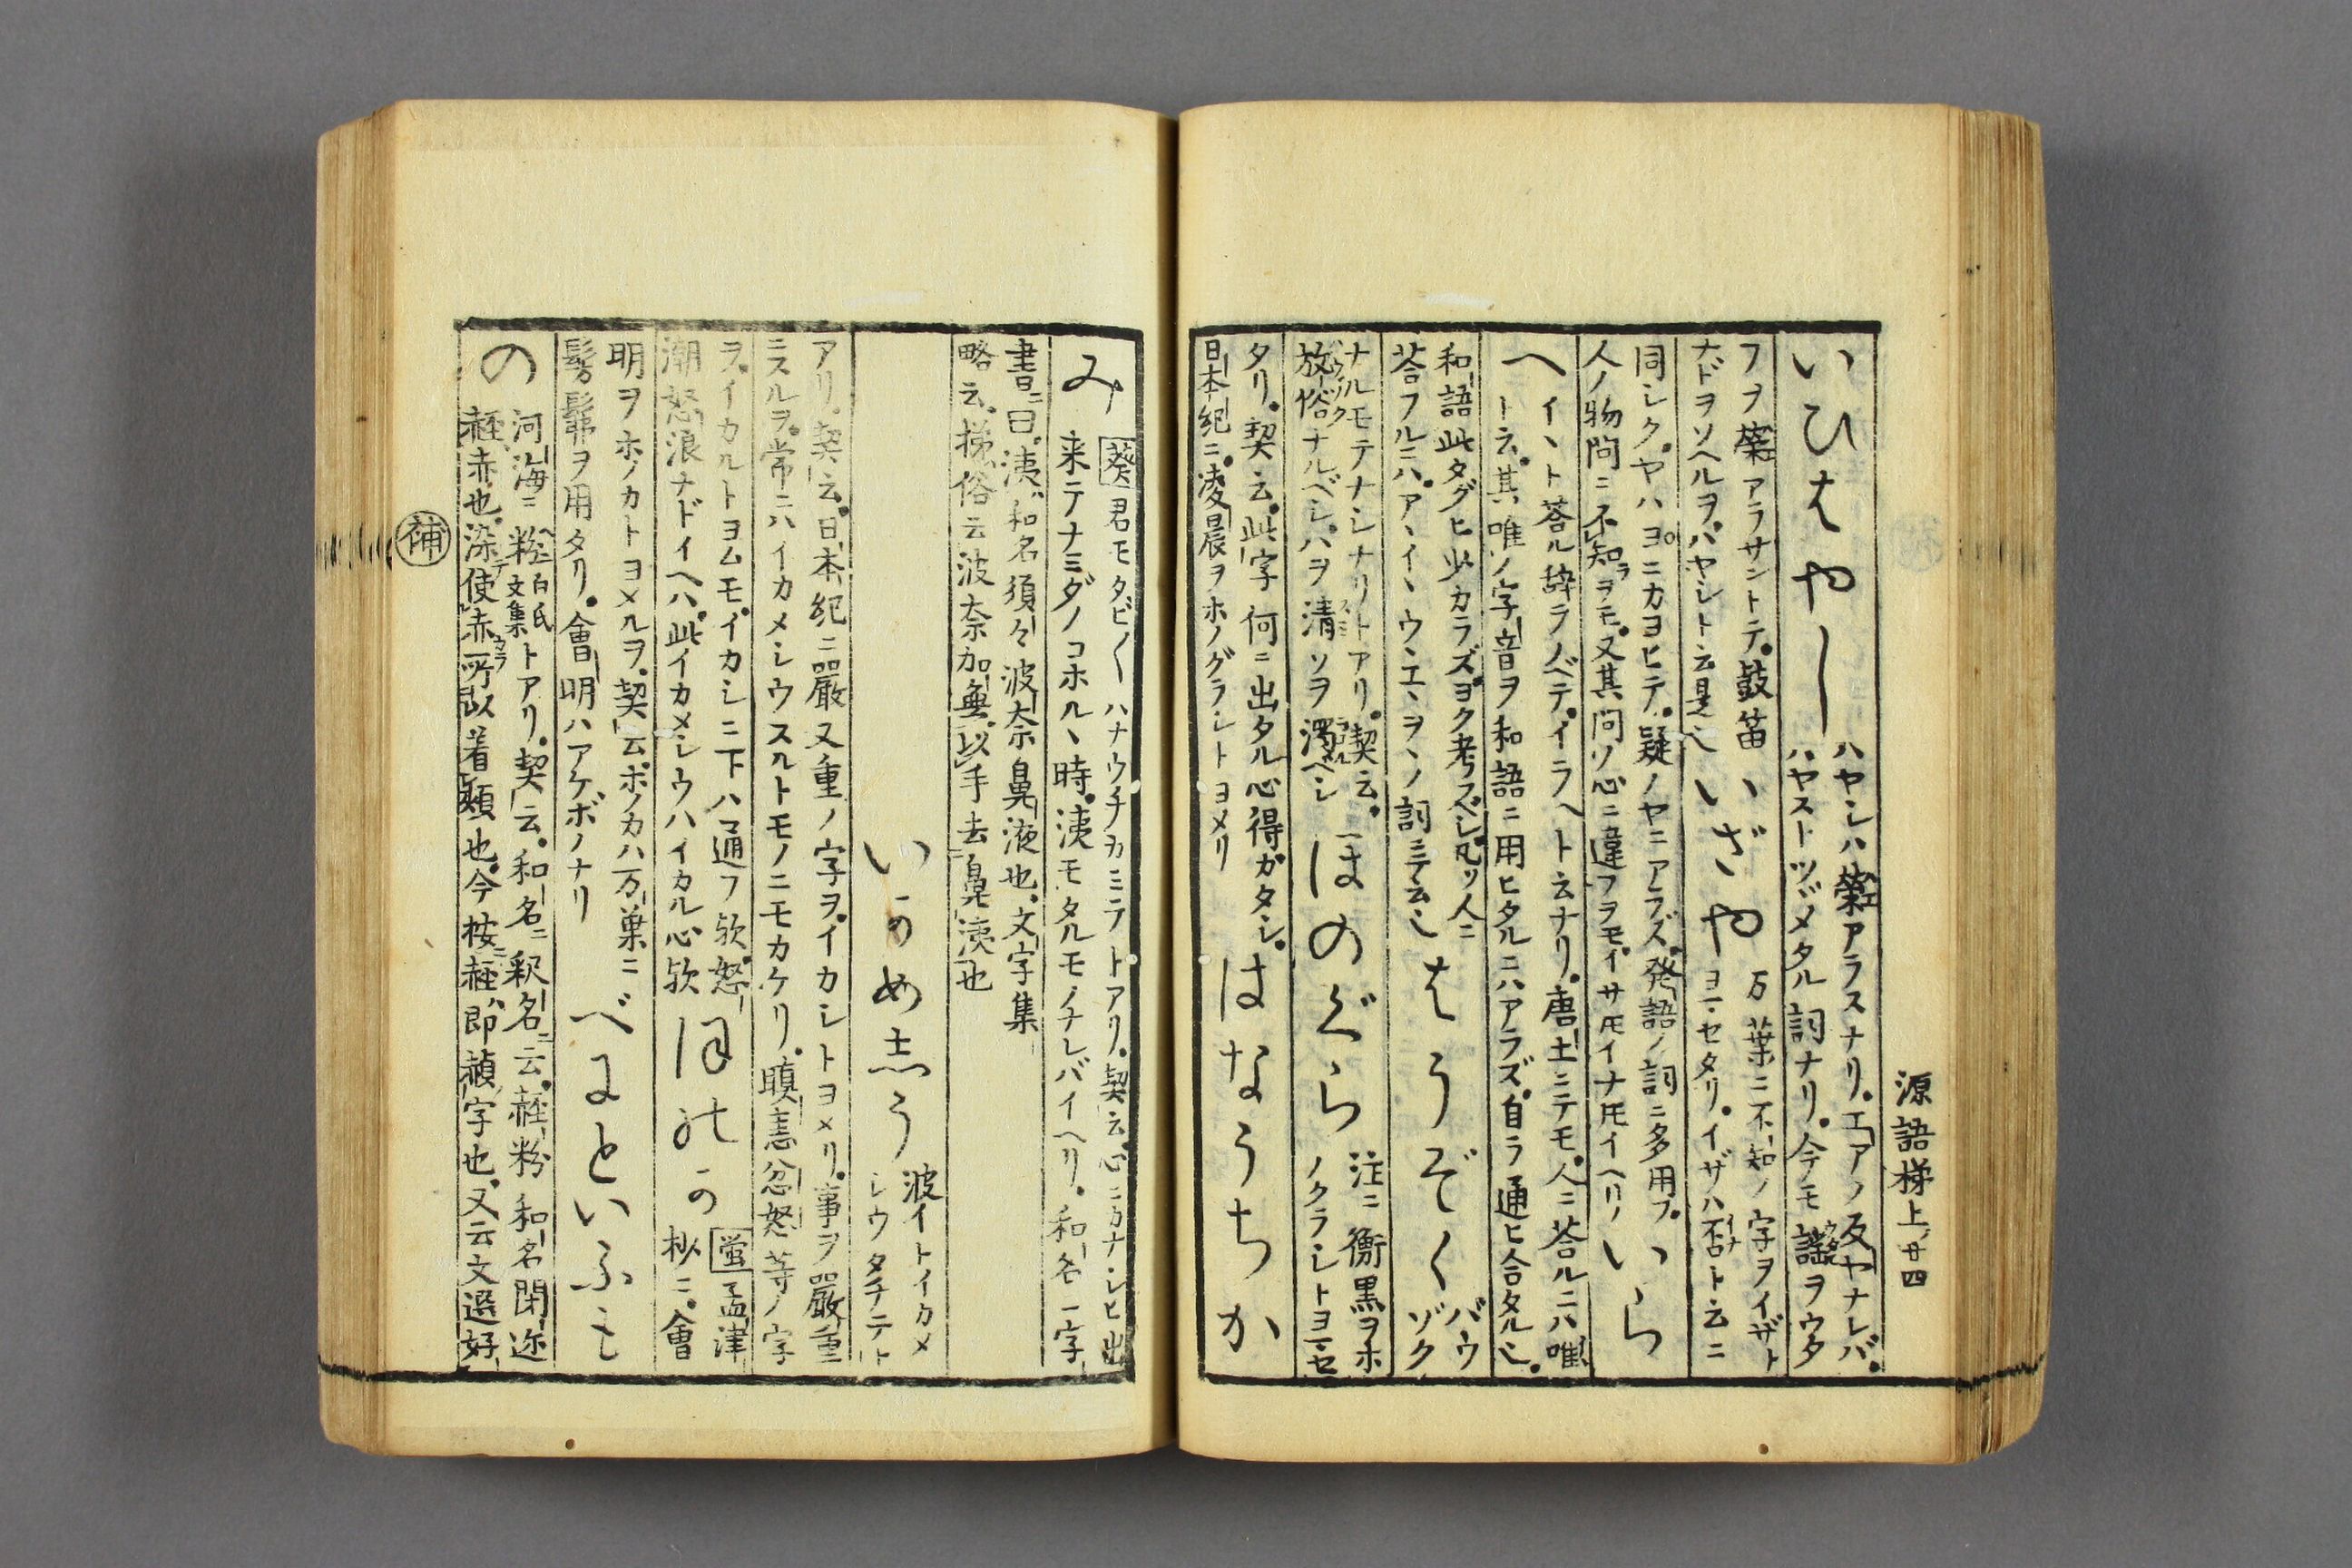 源語梯上ノ廿四
いひはやし
ハヤシハ榮アラスナリ。エアノ反ヤナレバ。
ハヤストツヾメタル詞ナリ。今モ謡ヲウタ
フヲ榮アラサントテ。鼓笛
ナドヲソヘルヲ。ハヤシト云是也
いざや
万葉ニ不知ノ字ヲイザト
ヨマセタリ。イザハ否ト云ニ
同シク。ヤハヨニカヨヒテ。疑ノヤニアラズ。発語ノ詞ニ多用フ。
人ノ物問ニ不知ヲモ。又其問ソ心ニ違フヲモ。イサ𪜈イナ𪜈イヘリ
いら
へ
イヽト答ル辞ラノベテ。イラヘト云ナリ。唐土ニテモ。人ニ答ルニハ唯
ト云。其唯ノ字音ヲ和語ニ用ヒタルニハアラズ。自ラ通ヒ合タル也。
和語此タグヒ少カラズ。ヨク考フベシ。凡ソ人ニ
答フルニハ。アヽイヽウヽエヽヲヽノ詞ニテ云也
はうぞく
バウ
ゾク
ナルモテナシナリトアリ。契云。
放俗ナルベシ。ハヲ清ソヲ濁ベシ
ほのぐら
注ニ衡黒ヲホ
ノクラシトヨマセ
タリ。契云。此字何ニ出タル心得ガタシ。
日本紀ニ。凌晨ヲホノグラシトヨメリ
はなうちか
み
葵君モタビ〱ハナウチカミテトアリ。契云。心ニカナシヒ出
来テナミダノコホルヽ時。洟モタルモノナレバイヘリ。和名一字
書ニ曰。洟。和名須々波奈鼻液也。文字集
略云。㨨。俗云波奈加無。以手去鼻洟也
いかめしう
波イトイカメ
シウタチテト
アリ。契云。日本紀ニ嚴又重ノ字ヲ。イカシトヨメリ。事ヲ嚴重
ニスルヲ。常ニハイカメシウスルトモノニモカケリ。瞋恚忿怒等ノ字
ヲ。イカルトヨムモ。イカシニ下ハ通フ欤。怒
潮怒浪ナドイヘハ。此イカメシウハイカル心欤
ほのか
蛍孟津
抄ニ。會
明ヲホノカトヨメルヲ。契云。ホノカハ万葉ニ
髣髴ヲ用タリ。會明ハアケボノナリ
べにといふも
の
河海ニ粉白氏文集トアリ。契云。和名ニ釈名ニ云。䞓粉和名閉迩
䞓赤也。染使赤所以着頬也。今按䞓ハ即赬字也。又云文選好
補